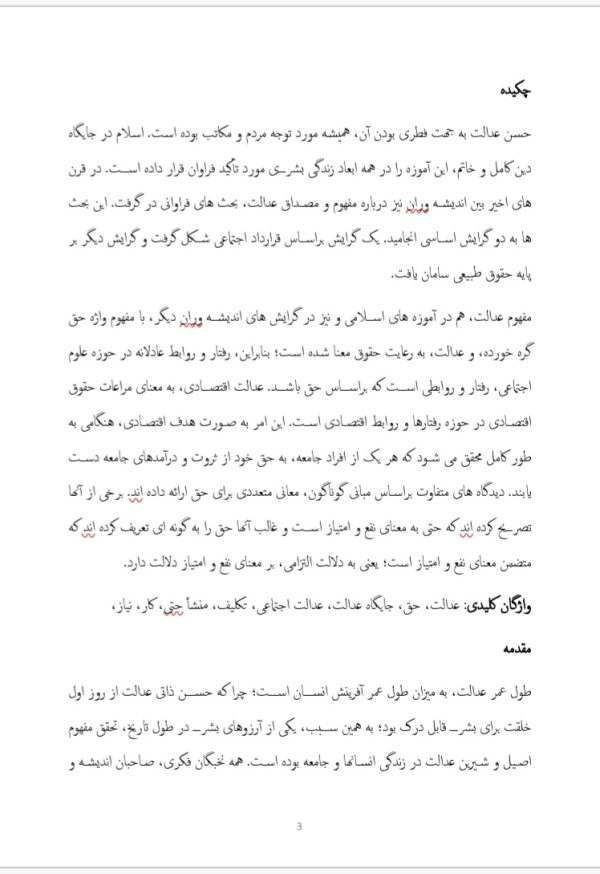 چکیده
حسن عدالت به جهت فطری بودن آن، همیشه مورد توجه مردم و مکاتب بوده است. اسلام در جایگاه
دین کامل و خاتم، این آموزه را در همه ابعاد زندگی بشری مورد تأکید فراوان قرار داده است. در قرن
های اخیر بین اندیشه وران نیز درباره مفهوم و مصداق عدالت، بحث های فراوانی در گرفت. این بحث
ها به دو گرایش اساسی انجامید. یک گرایش براساس قرارداد اجتماعی شکل گرفت و گرایش دیگر بر
پایه حقوق طبیعی سامان یافت.
مفهوم عدالت، هم در آموزه های اسلامی و نیز در گرایش های اندیشه وران دیگر، با مفهوم واژه حق
گره خورده، و عدالت، به رعایت حقوق معنا شده است؛ بنابراین، رفتار و روابط عادلانه در حوزه علوم
اجتماعی، رفتار و روابطی است که براساس حق باشد. عدالت اقتصادی، به معنای مراعات حقوق
اقتصادی در حوزه رفتارها و روابط اقتصادی است. این امر به صورت هدف اقتصادی، هنگامی به
طور کامل محقق می شود که هر یک از افراد جامعه، به حق خود از ثروت و درآمدهای جامعه دست
یابند. دیدگاه های متفاوت براساس مبانی گوناگون، معانی متعددی برای حق ارائه داده اند. برخی از آنها
تصریح کرده اند که حتی به معنای نفع و امتیاز است و غالب آنها حق را به گونه ای تعریف کرده اند که
متضمن معنای نفع و امتیاز است؛ یعنی به دلالت التزامی، بر معنای نفع و امتیاز دلالت دارد.
واژگان کلیدی: عدالت، حق، جایگاه عدالت، عدالت اجتماعی، تکلیف، منشأ حتی، کار، نیاز،
مقدمه
طول عمر عدالت، به میزان طول عمر آفرینش انسان است؛ چرا که حسن ذاتی عدالت از روز اول
خلقت برای بشر قابل درک بود؛ به همین سبب، یکی از آرزوهای بشر در طول تاریخ، تحقق مفهوم
اصیل و شیرین عدالت در زندگی انسانها و جامعه بوده است. همه نخبگان فکری، صاحبان اندیشه و
3